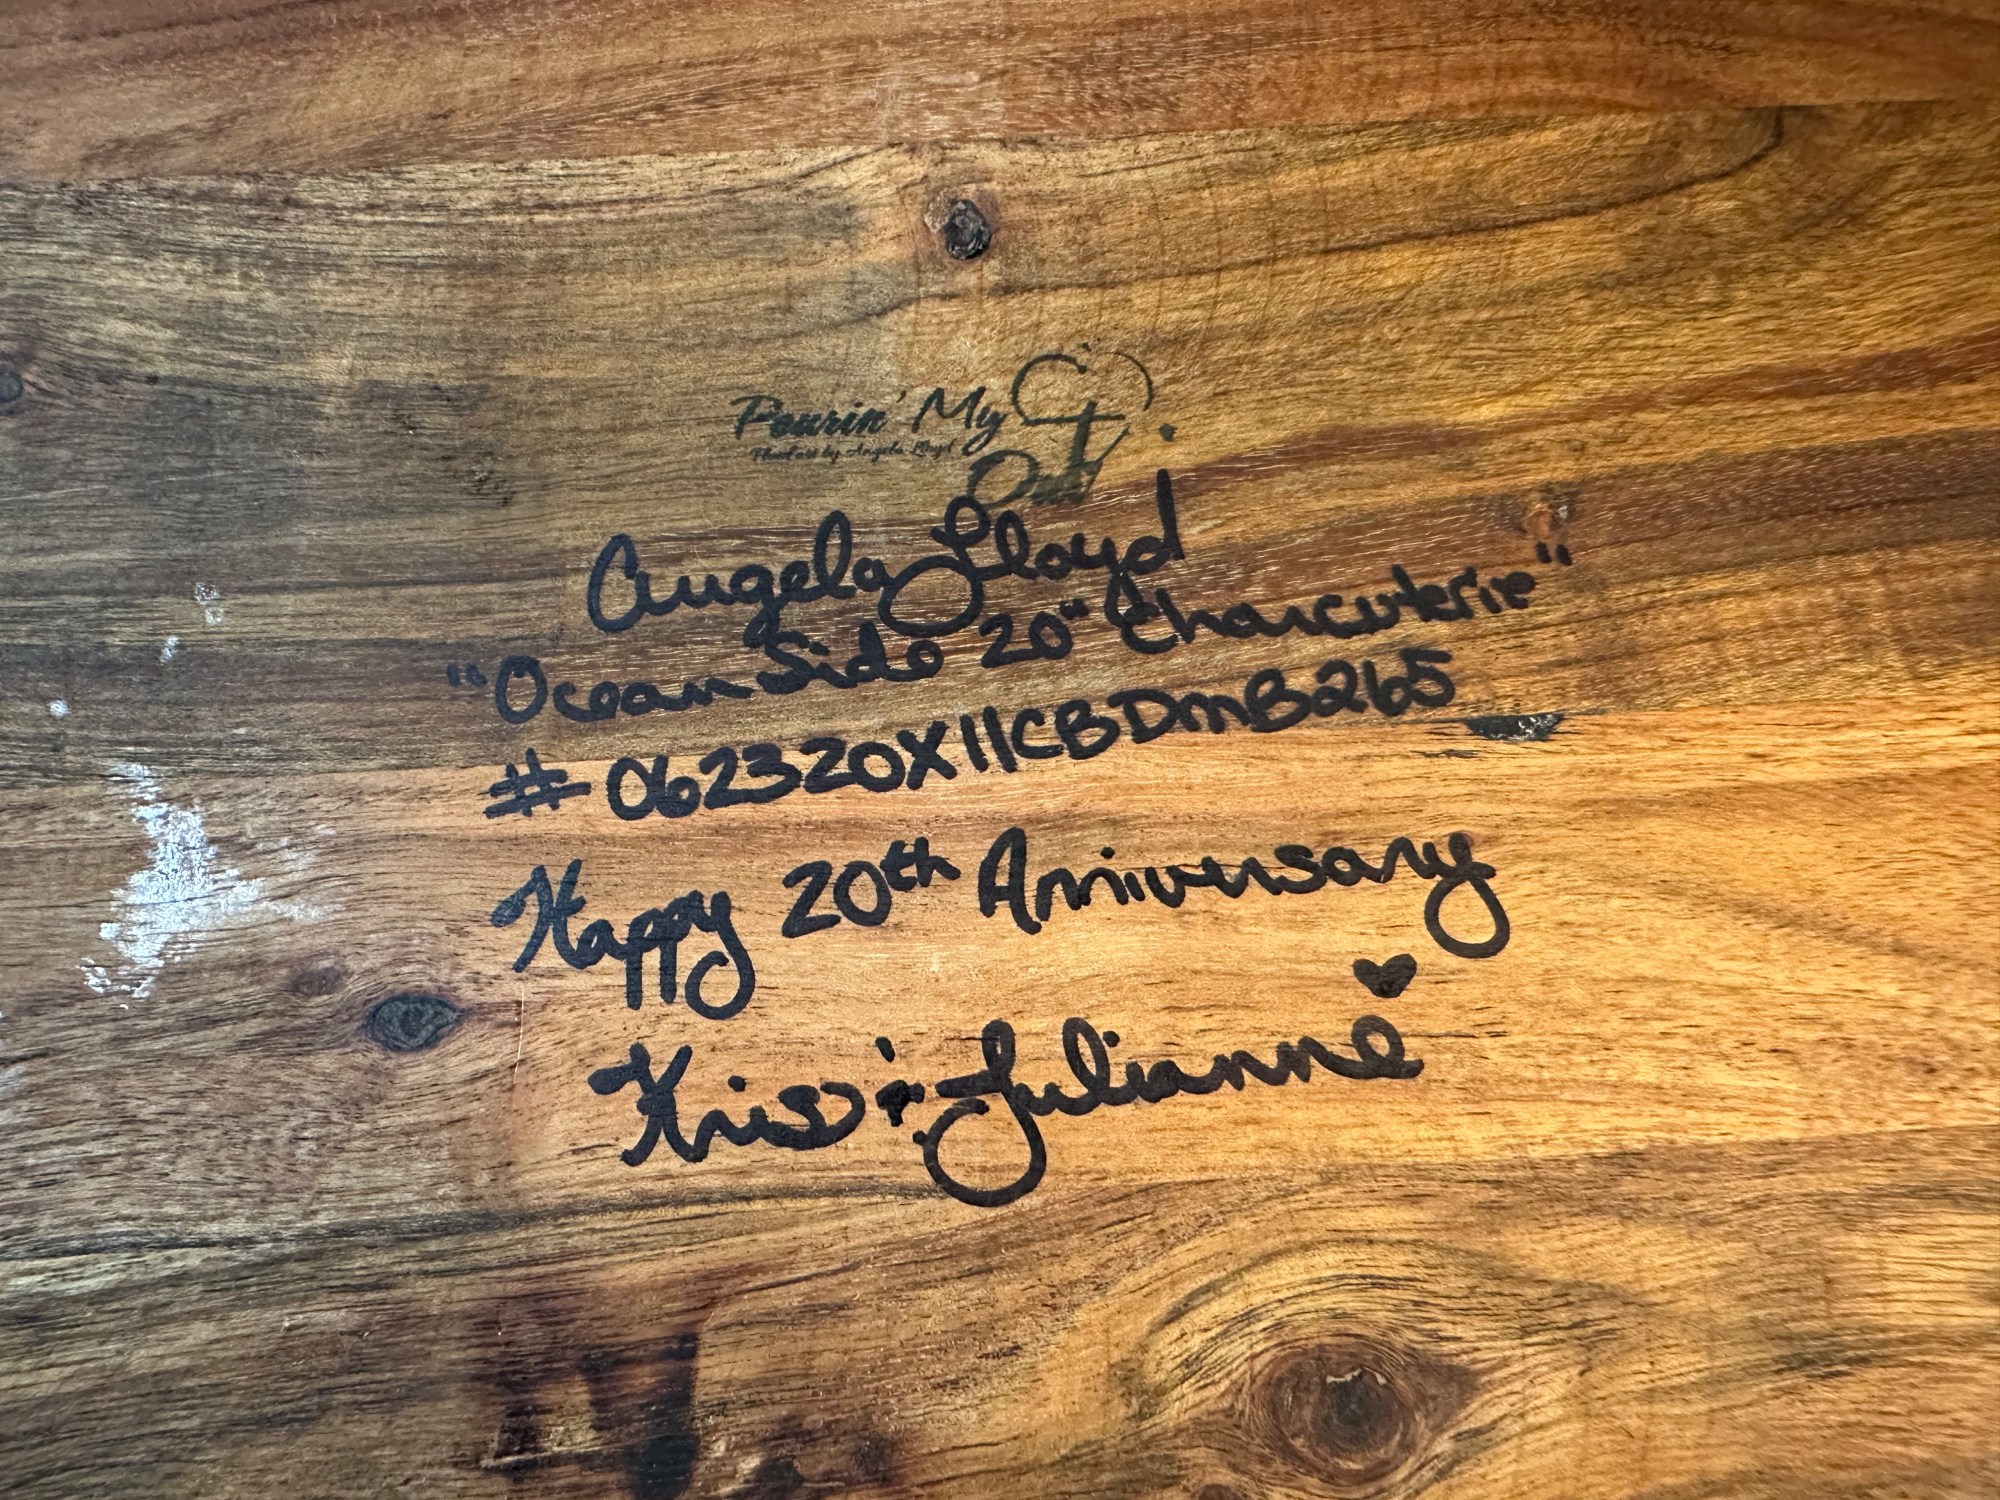 Pourin' My
Fluid art by Angela Lloyd
Out
Angela Lloyd
"Oceanside 20" Charcuterie"
# 062320X11CBDMB265
Happy 20th Anniversary
Kris & Julianne ♥